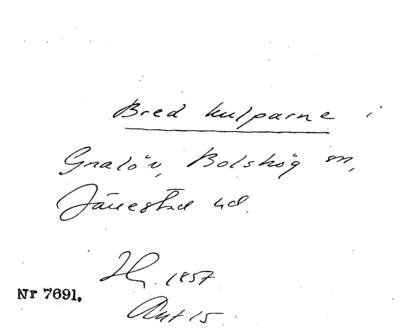 Bred kulparne i
Gnalöv, Bolshög sn,
Järrestad hd.
1857
Nr 7691.
15